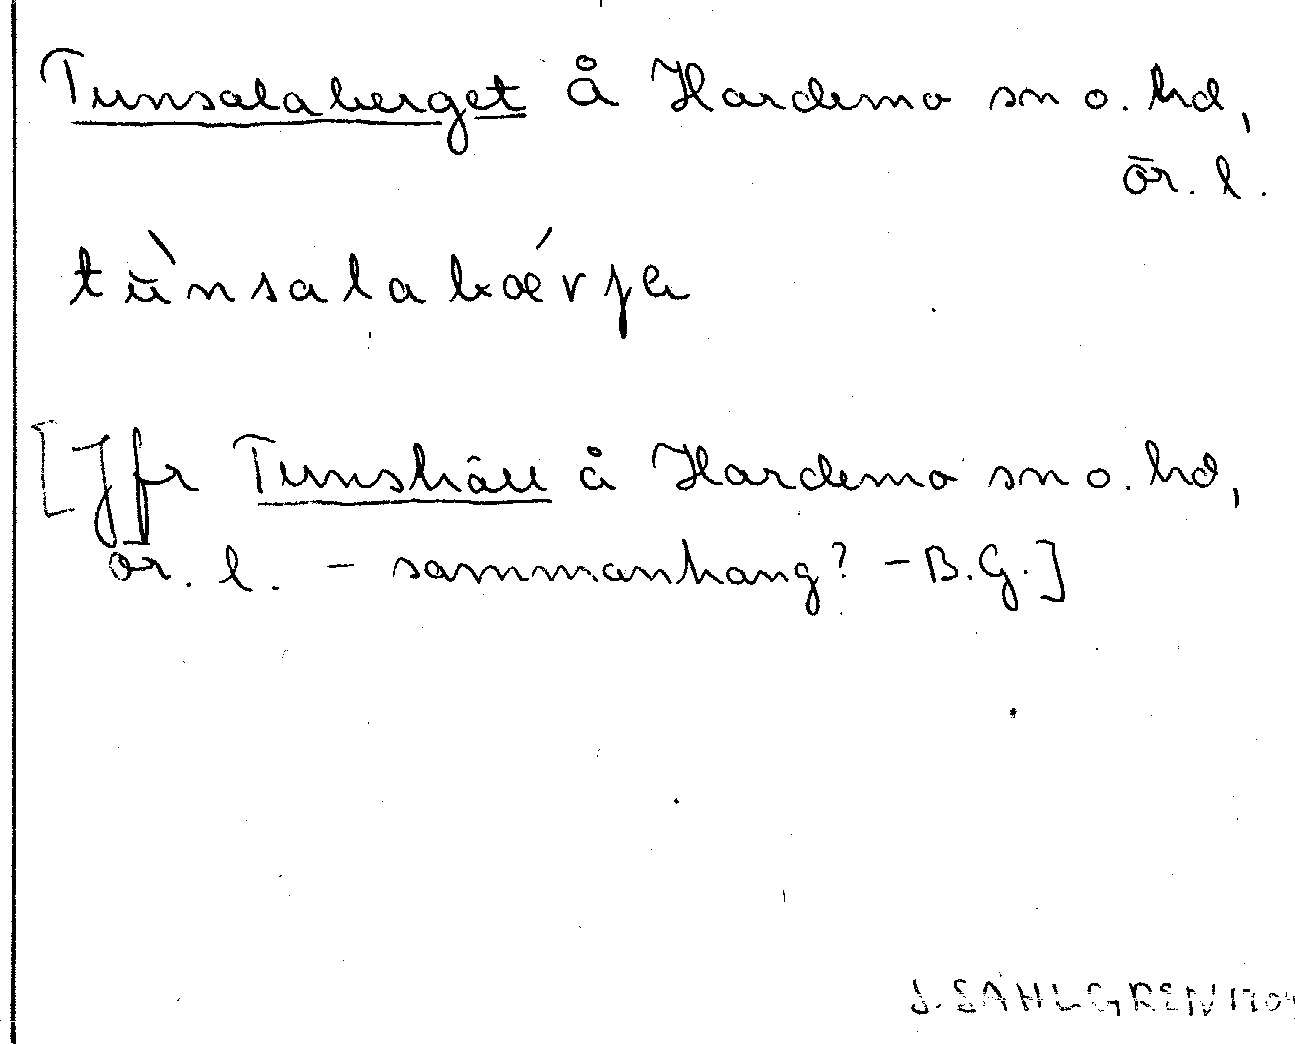 Tunsalaberget å Hardemo sn o. hd,
ör. l.
tu̇̀nsalabǽrja
[Jfr Tunshäll å Hardemo sn o. hd,
ör. l. – sammanhang? – B.G.]
J. SAHLGREN 190